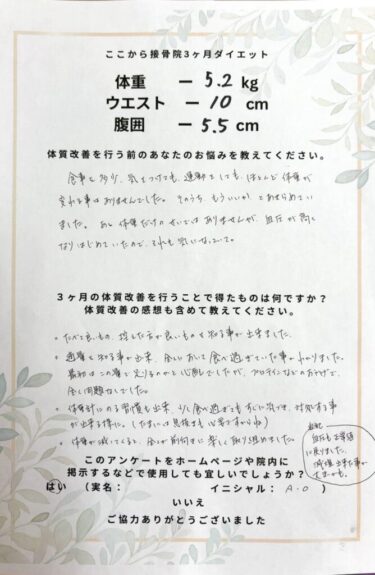 ここから接骨院3ヶ月ダイエット
体重 ー 5.2 kg
ウエスト ー 10 cm
腹囲 ー 5.5 cm
体質改善を行う前のあなたのお悩みを教えてください。
食事を多少、気をつけても、運動をしても、ほとんど体重が
変わる事はありませんでした。そのうち、もういいか!とあきらめてい
ました。あと体重だけのせいではありませんが、血圧が高く
なりはじめていたので、それも気になっていて。
3ヶ月の体質改善を行うことで得たものは何ですか?
体質改善の感想も含めて教えてください。
・たべて良いもの、控えた方が良いものを知る事が出来ました。
・適量を知る事が出来、全てにおいて食べ過ぎていた事がわかりました。
最初はこの量で足りるのかと心配でしたが、プロテインなどのおかげで、
全く問題なしでした。
・体重計にのる習慣も出来、少し食べ過ぎてもすぐに気づき、対処する事
が出来る様に。
・体重が減ってくると、全てが前向きに楽しく取り組めました。
血圧も正常値
に戻りました。
減塩出来た事が
このアンケートをホームページや院内に
掲示するなどで使用しても宜しいでしょうか?
はい (実名: イニシャル: A.O )
いいえ
ご協力ありがとうございました